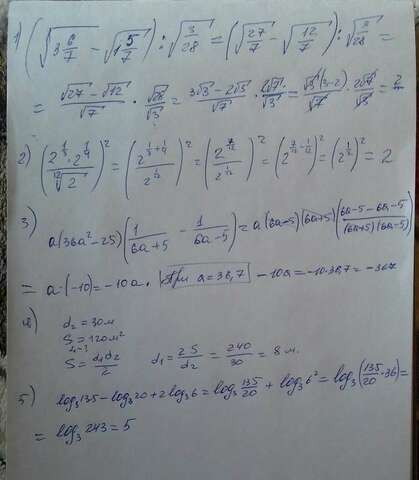 1) (√(3 6/7) - √(1 5/7)) : √(3/28) = (√(27/7) - √(12/7)) : √(3/28) =
= (√27 - √12)/√7 · √28/√3 = (3√3 - 2√3)/√7 · 2√7/√3 = √3(3-2)/√7 · 2√7/√3 = 2
2) ((2^(1/3) · 2^(1/4))/¹²√2)² = (2^(1/3+1/4)/2^(1/12))² = (2^(7/12)/2^(1/12))² = (2^(7/12-1/12))² = (2^(1/2))² = 2
3)
a(36a²-25)(1/(6a+5) - 1/(6a-5)) = a(6a-5)(6a+5)((6a-5-6a-5)/((6a+5)(6a-5)))
= a·(-10) = -10a. При a=36,7 -10a = -10·36,7 = -367
d₂ = 30м
S = 120м²
d₁-?
S = d₁d₂/2 d₁ = 2S/d₂ = 240/30 = 8 м.
5) log₃135 - log₃20 + 2log₃6 = log₃ 135/20 + log₃6² = log₃(135/20 · 36) =
= log₃243 = 5